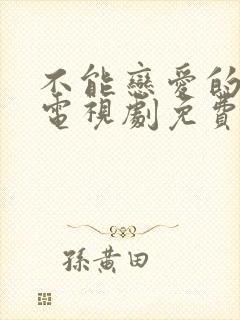 不能戀愛的
電視劇免費
孫黃田